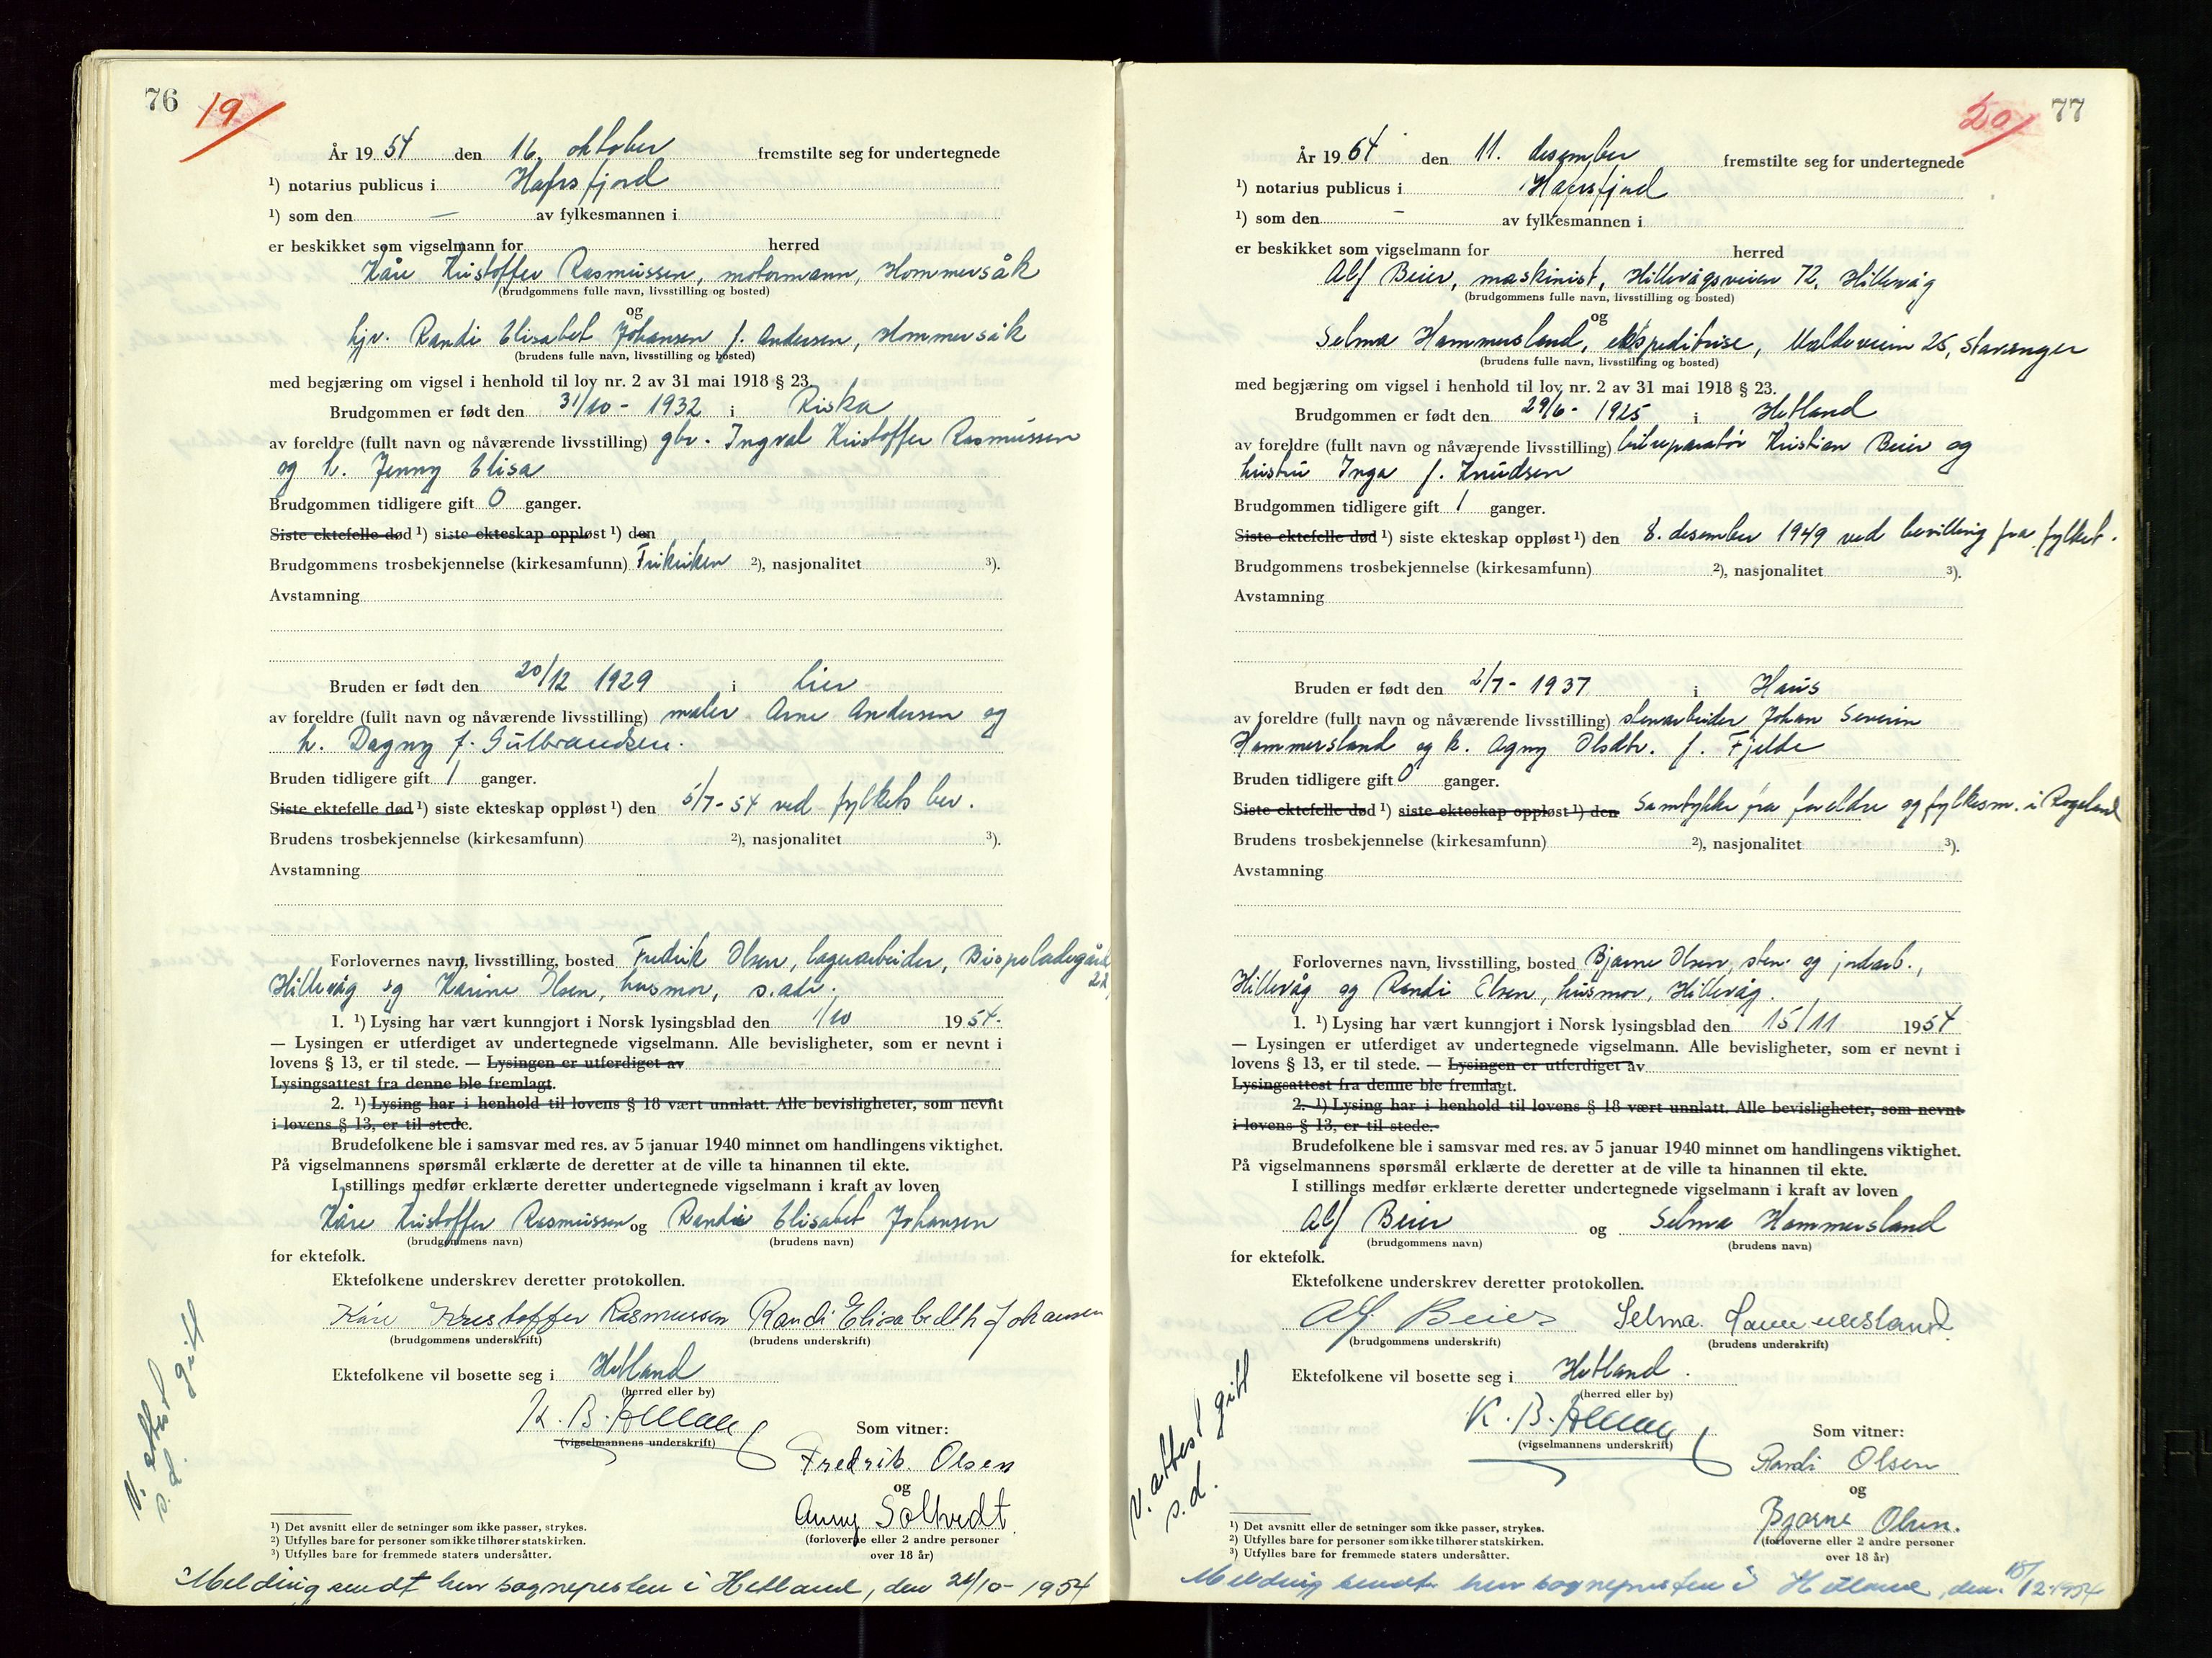 76 19/
År 1954 den 16. oktober fremstilte seg for undertegnede
¹) notarius publicus i Hafrsfjord
¹) som den — av fylkesmannen i
er beskikket som vigselmann for herred
Kåre Kristoffer Rasmussen, motormann, Hommersåk
(brudgommens fulle navn, livsstilling og bosted)
og
hjv. Randi Elisabet Johansen f. Andersen, Hommersåk
(brudens fulle navn, livsstilling og bosted)
med begjæring om vigsel i henhold til lov nr. 2 av 31 mai 1918 § 23.
Brudgommen er født den 31/10 - 1932 i Riska
av foreldre (fullt navn og nåværende livsstilling) gbr. Ingval Kristoffer Rasmussen
og h. Jenny Elisa
Brudgommen tidligere gift 0 ganger.
Siste ektefelle død ¹) siste ekteskap oppløst ¹) den
Brudgommens trosbekjennelse (kirkesamfunn) Frikirken ²), nasjonalitet ³).
Avstamning
Bruden er født den 20/12 1929 i Lier
av foreldre (fullt navn og nåværende livsstilling) maler Arne Andersen og
h. Dagny f. Gulbrandsen.
Bruden tidligere gift 1 ganger.
Siste ektefelle død ¹) siste ekteskap oppløst ¹) den 5/7-54 ved fylkets bev.
Brudens trosbekjennelse (kirkesamfunn) ²), nasjonalitet ³).
Avstamning
Forlovernes navn, livsstilling, bosted Fredrik Olsen, lagerarbeider,
Hillevåg og Karine Olsen, husmor, s. adr. 22,
1. ¹) Lysing har vært kunngjort i Norsk lysingsblad den 1/10 1954.
— Lysingen er utferdiget av undertegnede vigselmann. Alle bevisligheter, som er nevnt i
lovens § 13, er til stede. — Lysingen er utferdiget av
Lysingsattest fra denne ble fremlagt.
2. ¹) Lysing har i henhold til lovens § 18 vært unnlatt. Alle bevisligheter, som nevnt
i lovens § 13, er til stede.
Brudefolkene ble i samsvar med res. av 5 januar 1940 minnet om handlingens viktighet.
På vigselmannens spørsmål erklærte de deretter at de ville ta hinannen til ekte.
I stillings medfør erklærte deretter undertegnede vigselmann i kraft av loven
Kåre Kristoffer Rasmussen og Randi Elisabet Johansen
(brudgommens navn) (brudens navn)
for ektefolk.
Ektefolkene underskrev deretter protokollen.
Kåre Kristoffer Rasmussen Randi Elisabedth Johansen
(brudgommens underskrift) (brudens underskrift)
Ektefolkene vil bosette seg i Hetland
(herred eller by)
K. B.
(vigselmannens underskrift)
Som vitner:
Fredrik. Olsen
og
Anny Soltvedt
(forloverne eller 2 andre personer
over 18 år)
V. attest gitt
s.d.
¹) Det avsnitt eller de setninger som ikke passer, strykes.
²) Utfylles bare for personer som ikke tilhører statskirken.
³) Utfylles bare for fremmede staters undersåtter.
Melding sendt herr sognepresten i Hetland, den 26/10-1954
20/ 77
År 1954 den 11. desember fremstilte seg for undertegnede
¹) notarius publicus i Hafrsfjord
¹) som den – av fylkesmannen i
er beskikket som vigselmann for herred
Alf Beier, maskinist, Hillevågsveien 72, Hillevåg
(brudgommens fulle navn, livsstilling og bosted)
og
Selma Hammersland, ekspeditrise, Maldeveien 25, Stavanger
(brudens fulle navn, livsstilling og bosted)
med begjæring om vigsel i henhold til lov nr. 2 av 31 mai 1918 § 23.
Brudgommen er født den 29/6 - 1925 i Hetland
av foreldre (fullt navn og nåværende livsstilling) bilreparatør Kristian Beier og
hustru Inga f. Knudsen
Brudgommen tidligere gift 1 ganger.
Siste ektefelle død ¹) siste ekteskap oppløst ¹) den 8. desember 1949 ved bevilling fra fylket.
Brudgommens trosbekjennelse (kirkesamfunn) ²), nasjonalitet ³).
Avstamning
Bruden er født den 2/7 - 1937 i Haus
av foreldre (fullt navn og nåværende livsstilling) stenarbeider Johan Severin
Hammersland og h. Agny Olsdtr. f. Fjelde
Bruden tidligere gift 0 ganger.
Siste ektefelle død ¹) siste ekteskap oppløst ¹) den Samtykke fra foreldre og fylkesm. i Rogaland
Brudens trosbekjennelse (kirkesamfunn) ²), nasjonalitet ³).
Avstamning
Forlovernes navn, livsstilling, bosted Bjarne Olsen, sten- og jordarb.,
Hillevåg og Randi Olsen, husmor, Hillevåg.
1. ¹) Lysing har vært kunngjort i Norsk lysingsblad den 15/11 1954
— Lysingen er utferdiget av undertegnede vigselmann. Alle bevisligheter, som er nevnt i
lovens § 13, er til stede. — Lysingen er utferdiget av
Lysingsattest fra denne ble fremlagt.
2. ¹) Lysing har i henhold til lovens § 18 vært unnlatt. Alle bevisligheter, som nevnt
i lovens § 13, er til stede.
Brudefolkene ble i samsvar med res. av 5 januar 1940 minnet om handlingens viktighet.
På vigselmannens spørsmål erklærte de deretter at de ville ta hinannen til ekte.
I stillings medfør erklærte deretter undertegnede vigselmann i kraft av loven
Alf Beier og Selma Hammersland
(brudgommens navn) (brudens navn)
for ektefolk.
Ektefolkene underskrev deretter protokollen.
Alf Beier Selma Hammersland
(brudgommens underskrift) (brudens underskrift)
Ektefolkene vil bosette seg i Hetland.
(herred eller by)
K. B.
(vigselmannens underskrift)
Som vitner:
Randi Olsen
og
Bjarne Olsen.
(forloverne eller 2 andre personer
over 18 år)
V. attest gitt
s.d.
¹) Det avsnitt eller de setninger som ikke passer, strykes.
²) Utfylles bare for personer som ikke tilhører statskirken.
³) Utfylles bare for fremmede staters undersåtter.
Melding sendt herr sognepresten i Hetland, den 18/12-1954